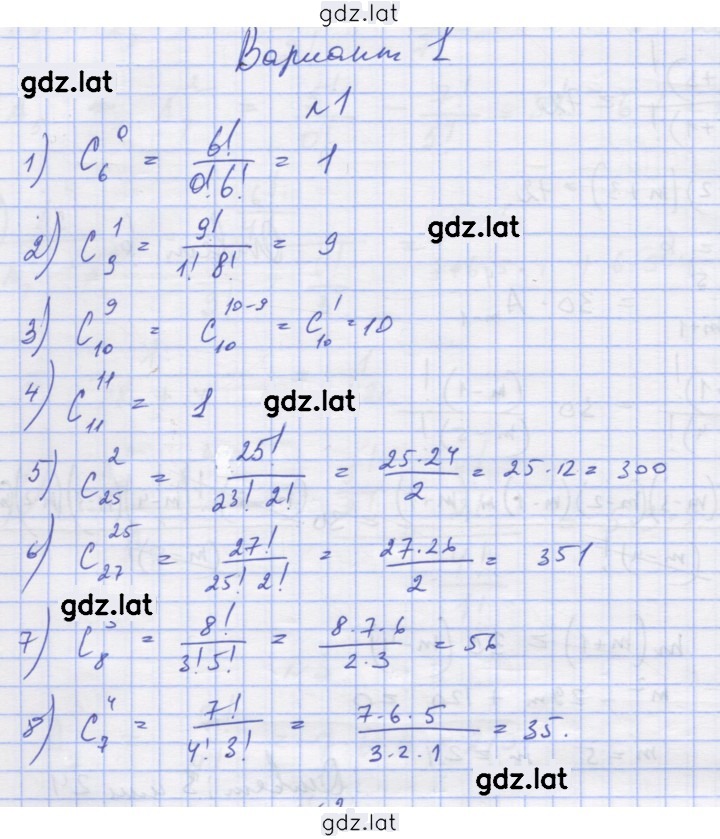 gdz.lat
Вариант 1
gdz.lat
№1
1) C₆⁰ = 6!/(0! 6!) = 1
2) C₉¹ = 9!/(1! 8!) = 9
gdz.lat
3) C₁₀⁹ = C₁₀¹⁰⁻⁹ = C₁₀¹ = 10
4) C₁₁¹¹ = 1
gdz.lat
5) C₂₅² = 25!/(23! 2!) = 25·24/2 = 25·12 = 300
6) C₂₇²⁵ = 27!/(25! 2!) = 27·26/2 = 351
gdz.lat
7) C₈ = 8!/(3! 5!) = 8·7·6/(2·3) = 56
8) C₇⁴ = 7!/(4! 3!) = 7·6·5/(3·2·1) = 35.
gdz.lat
gdz.lat